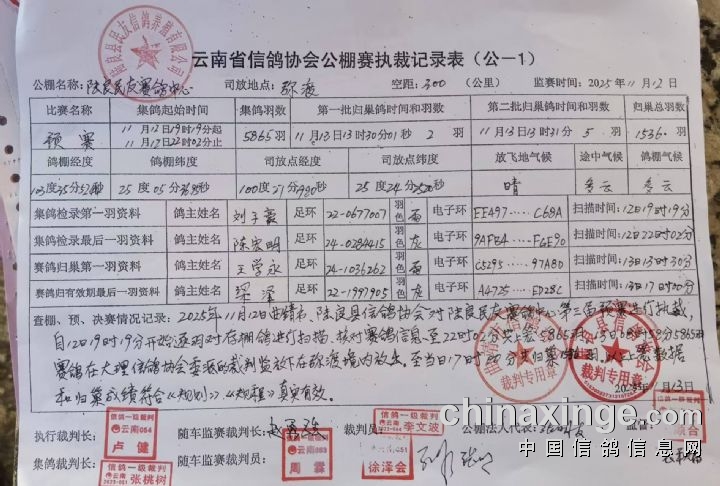 云南省信鸽协会公棚赛执裁记录表（公-1）
公棚名称：陆良民友赛鸽中心 司放地点：弥渡 空距：300（公里） 监赛时间：2025年11月12日
比赛名称 集鸽起始时间 集鸽羽数 第一批归巢鸽时间和羽数 第二批归巢鸽时间和羽数 归巢总羽数
预赛 11月12日19时19分起 11月12日22时02分止 5865羽 11月13日13时30分01秒 2羽 11月13日13时31分 5羽 1536羽
鸽棚经度 鸽棚纬度 司放点经度 司放点纬度 放飞地气候 途中气候 鸽棚气候
25度05分 100度27分 25度24分 晴 多云 多云
集鸽检录第一羽资料 鸽主姓名 足环 22-0677007 羽色 电子环 EE497.....C68A 扫描时间：12日19时19分
集鸽检录最后一羽资料 鸽主姓名 陈宏明 足环 24-0284415 羽色 灰 电子环 9AFE4.....FGE90 扫描时间：12日22时02分
赛鸽归巢第一羽资料 鸽主姓名 王学永 足环 24-1036262 羽色 电子环 C5295.....97A80 扫描时间：13日13时30分
赛鸽归有效期最后一羽资料 鸽主姓名 梁泽 足环 22-1997905 羽色 灰 电子环 A4725.....ED28C 扫描时间：13日17时00分
查棚、预、决赛情况记录：2025年11月12日曲靖市、陆良县信鸽协会对陆良民友赛鸽中心第三届预赛进行执裁，
自12日19时19分开始逐羽对存棚鸽进行扫描、核对赛鸽信息至22时02分共上笼5865羽，13日08时58分5865羽
赛鸽在大理信鸽协会委派的裁判监放下在弥渡境内放飞。至当日17时00分共归巢1536羽，以上赛数据
和归巢成绩符合《规则》、《规程》真实有效。
裁判专用章
裁判专用章
2025年11月13日
执行裁判长： 随车监赛裁判长： 裁判员： 公棚法人代表： 监督：
信鸽一级裁判 云南054 卢健
信鸽一级裁判 李文波
集鸽裁判长： 随车监赛裁判员：
信鸽一级裁判 张桃树
云南053 周霖
云南051 徐泽会
chinaxinge.com
中国信鸽信息网